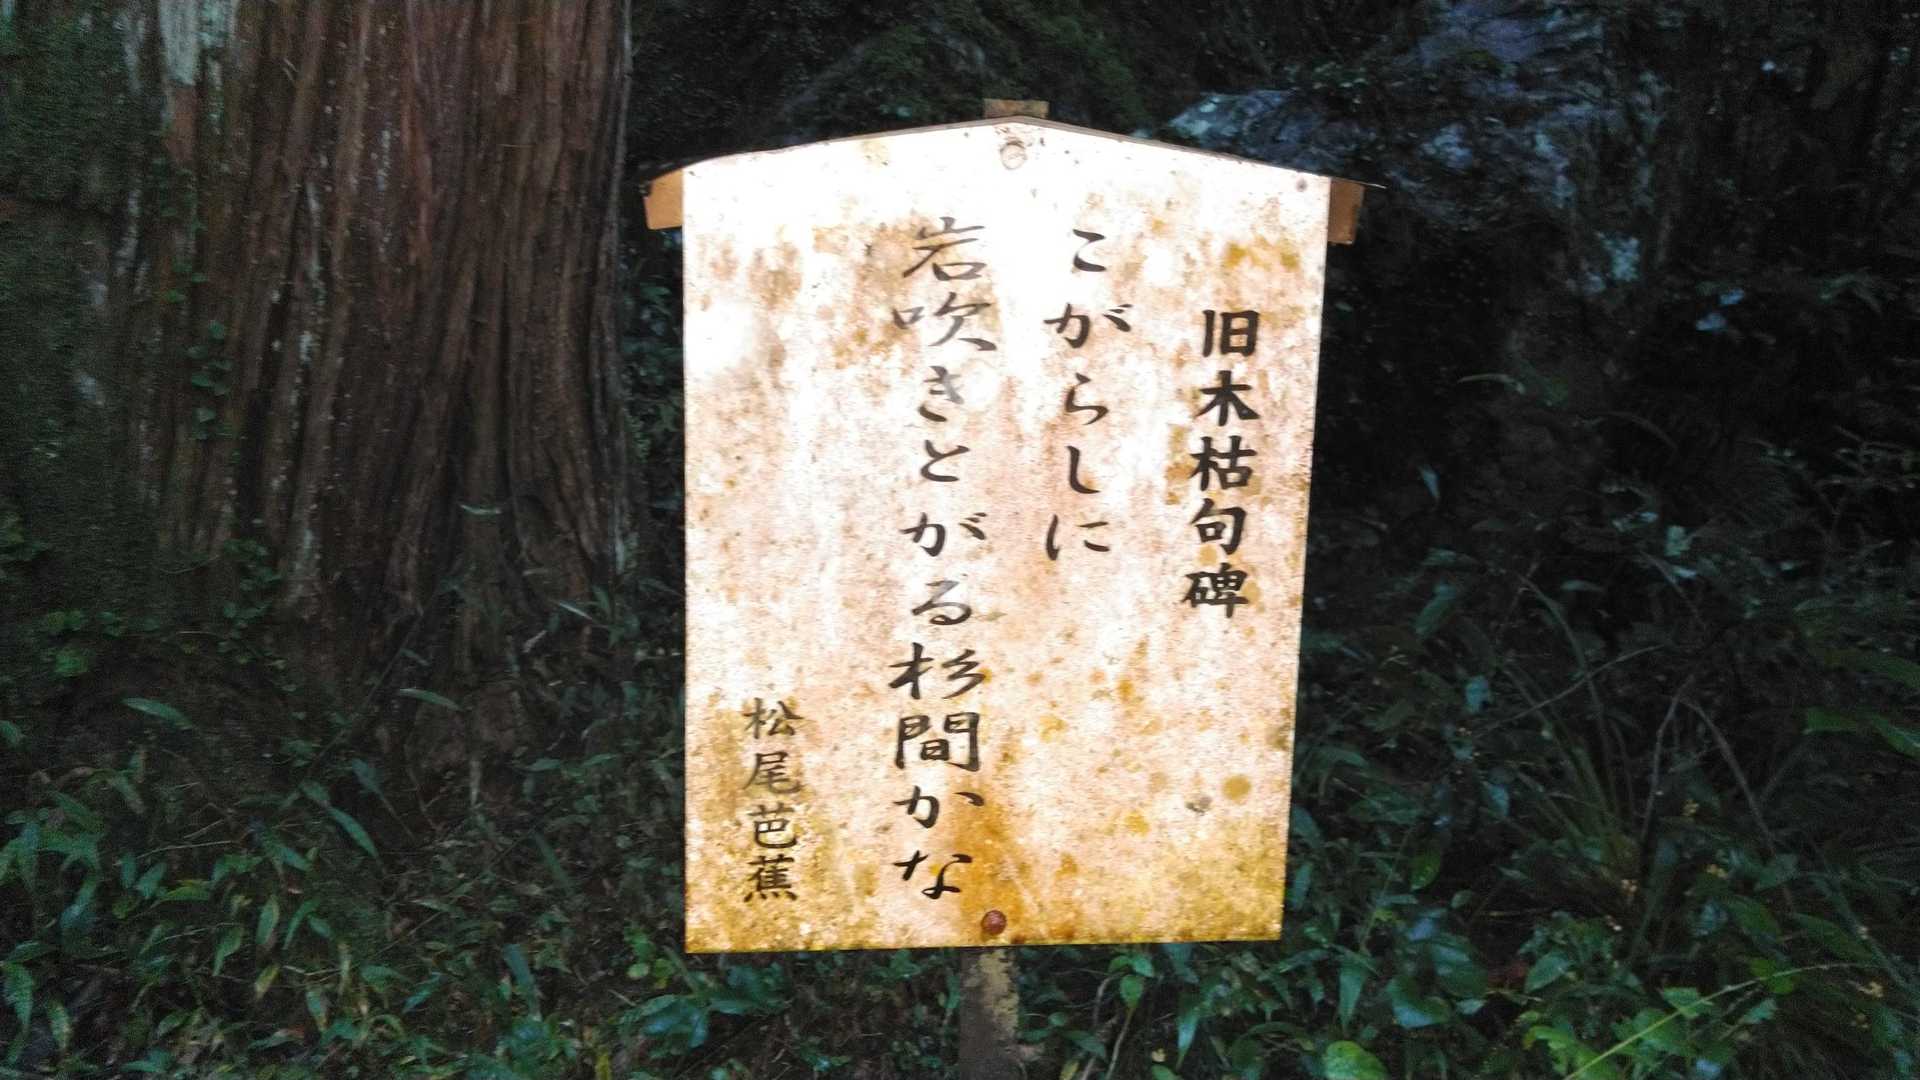 旧木枯句碑
こがらしに
岩吹きとがる杉間かな
松尾芭蕉